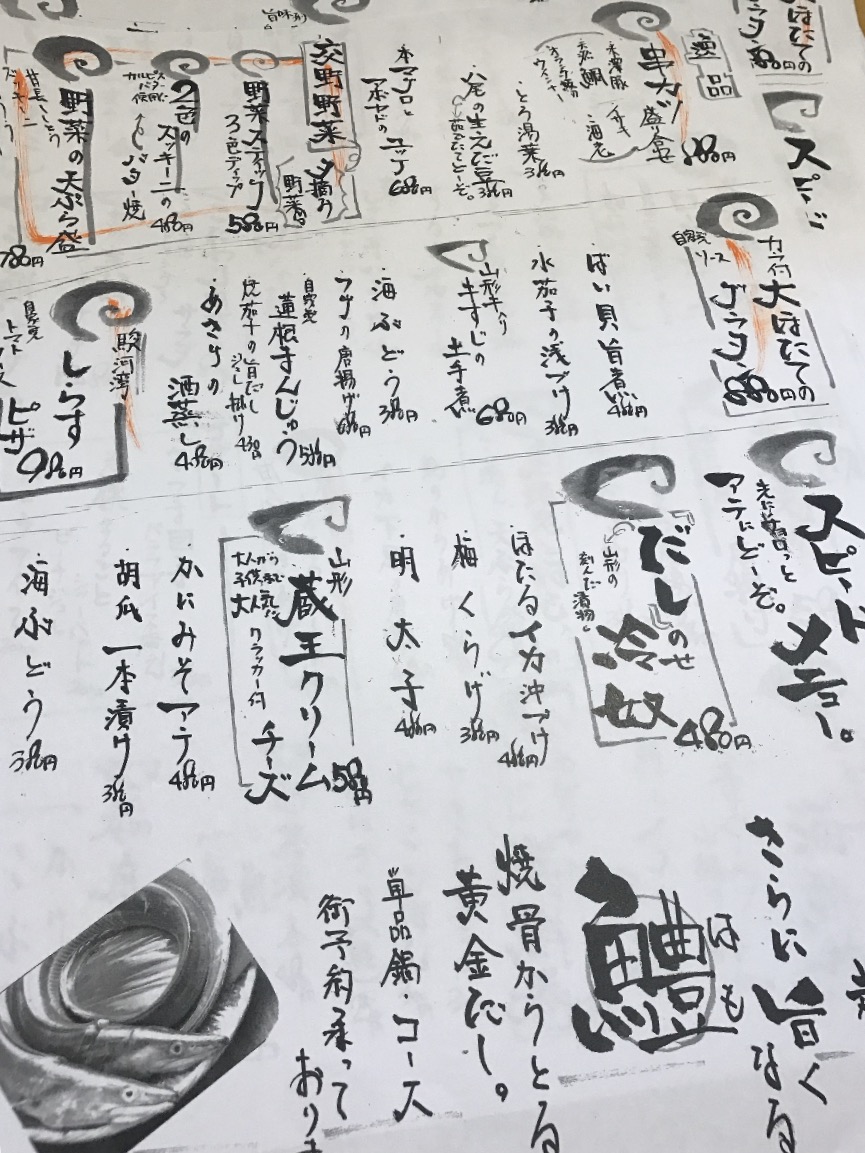 大ほたての
グラタン
スピード
逸品
串カツ盛り合せ
880円
チーズ
海老
とろ湯葉 380円
八尾の生えだ豆 380円
本マグロと
アボカドのユッケ
680円
交野野菜
夕摘み
野菜。
野菜スティック
3色ディップ
580円
2色の
ズッキーニの
バター焼
480円
カルピス
バター
使用
野菜の天ぷら盛
780円
ズッキーニ
カラ付大ほたての
グラタン
880円
自家製ソース
ばい貝旨煮 480円
水茄子の浅づけ 380円
山形牛入り
牛すじの
土手煮
680円
海ぶどう 380円
フグの唐揚げ 680円
自家製
蓮根まんじゅう 580円
焼茄子の旨だし
ジュレ掛け 430円
あさりの
酒蒸し
480円
駿河湾
しらす
ピザ
980円
自家製
トマト
スピード
メニュー。
アテにどーぞ。
だしのせ
冷奴
480円
山形の
刻んだ漬物
ほたるイカ沖づけ 480円
梅くらげ 380円
明太子 480円
山形
蔵王クリーム
チーズ
580円
大人から
子供まで
大人気！
クラッカー付
かにみそアテ 480円
胡瓜一本漬け 380円
海ぶどう 380円
さらに旨くなる
はも
鱧
焼骨からとる
黄金だし。
単品鍋・コース
御予約承って
おりま